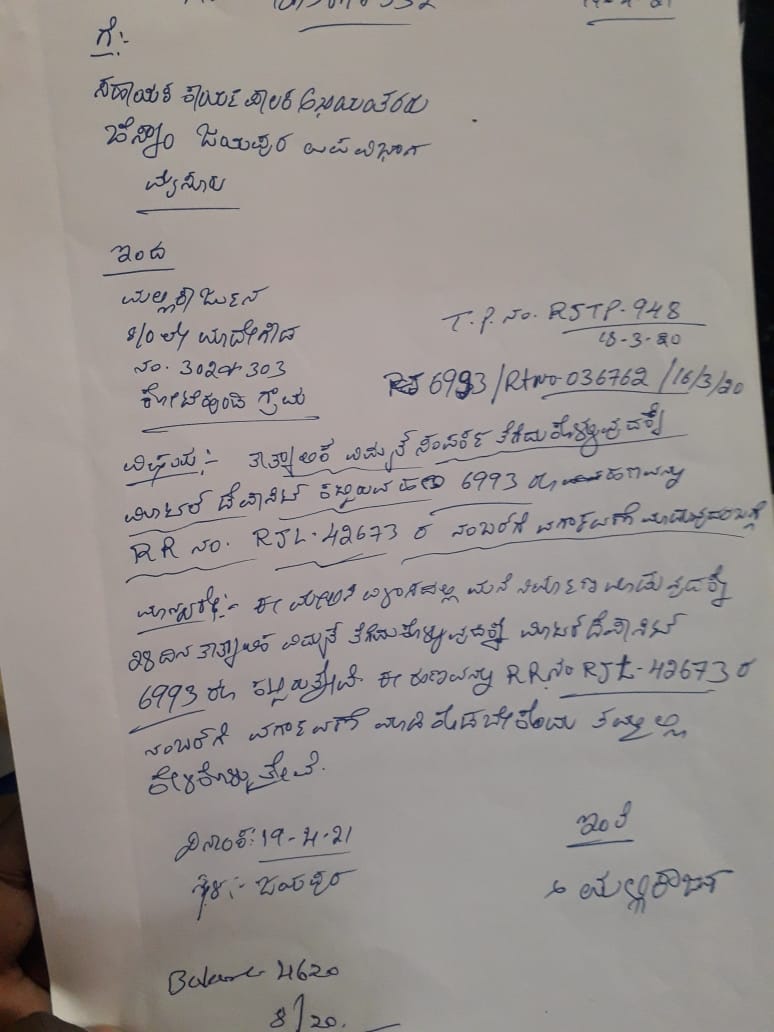 ಗೆ:-
ಸಹಾಯಕ ಕಾರ್ಯಪಾಲಕ ಅಭಿಯಂತರರು
ಜಯಪುರ ಉಪವಿಭಾಗ
ಮೈಸೂರು
ಇಂದ
ಮಲ್ಲಿಕಾರ್ಜುನ
S/o ಲೇ ಮಾದೇಗೌಡ
ನಂ. 302 & 303
ಗ್ರಾಮ
T.P. ನಂ. RJTP-948
18-3-20
RS 6993/Rt No 036762/16/3/20
ವಿಷಯ:- ತಾತ್ಕಾಲಿಕ ವಿದ್ಯುತ್ ಸಂಪರ್ಕ ತೆಗೆದುಕೊಳ್ಳುವುದಕ್ಕೆ
ಮೀಟರ್ ಡೆಪಾಸಿಟ್ ಕಟ್ಟಿರುವ ಹಣ 6993 ರೂ ಹಣವನ್ನು
RR ನಂ. RJL-42673 ರ ನಂಬರ್‌ಗೆ ವರ್ಗಾವಣೆ ಮಾಡುವುದರ ಬಗ್ಗೆ
ಮಾನ್ಯರೇ:- ಈ ಮೇಲಿನ ವಿಳಾಸದಲ್ಲಿ ಮನೆ ನಿರ್ಮಾಣ ಮಾಡುವುದಕ್ಕೆ
28 ದಿನ ತಾತ್ಕಾಲಿಕ ವಿದ್ಯುತ್ ತೆಗೆದುಕೊಳ್ಳುವುದಕ್ಕೆ ಮೀಟರ್ ಡೆಪಾಸಿಟ್
6993 ರೂ ಕಟ್ಟಿರುತ್ತೇವೆ. ಈ ಹಣವನ್ನು RR ನಂ RJL-42673 ರ
ನಂಬರ್‌ಗೆ ವರ್ಗಾವಣೆ ಮಾಡಿಕೊಡಬೇಕೆಂದು ತಮ್ಮಲ್ಲಿ
ಕೇಳಿಕೊಳ್ಳುತ್ತೇವೆ.
ದಿನಾಂಕ: 19-4-21
ಸ್ಥಳ:- ಜಯಪುರ
ಇಂತಿ
ಮಲ್ಲಿಕಾರ್ಜುನ
Balance 4620
8/20.